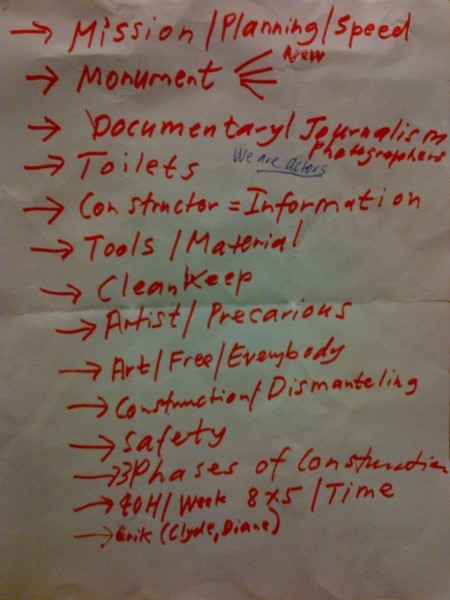 → Mission / Planning / Speed
→ Monument New
→ Documentary / Journalism
Photographers
→ Toilets We are actors
→ Constructor = Information
→ Tools / Material
→ Clean Keep
→ Artist / Precarious
→ Art / Free / Everybody
→ Construction / Dismanteling
→ Safety
→ 3 Phases of Construction
→ 40H / Week 8x5 / Time
→ Erik (Clyde, Diane)